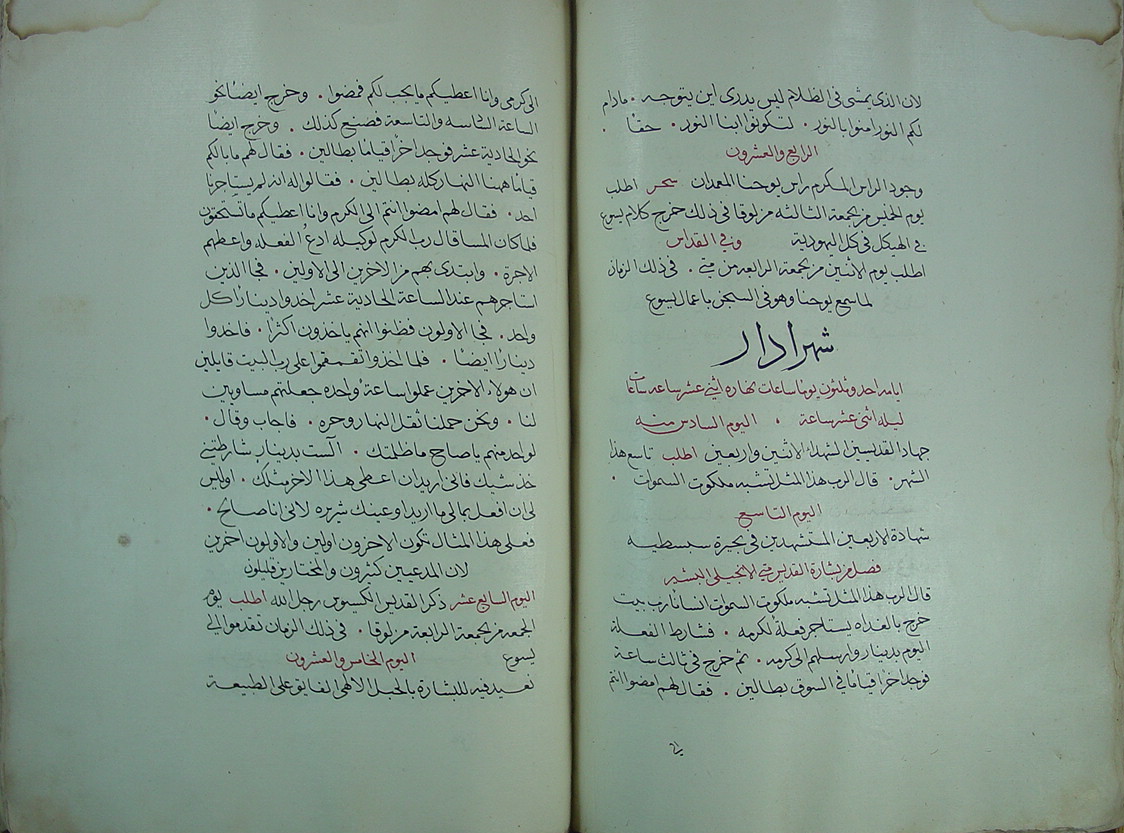 لان الذي يمشي في الظلام ليس يدري اين يتوجه . مادام
لكم النور امنوا بالنور . لتكونوا ابنا النور . حقا .
الرابع والعشرون
وجود الراس المكرم راس يوحنا المعمدان سحر اطلب
يوم الخميس من الجمعة الثالثه من لوقا في ذلك خرج كلام يسوع
في الهيكل في كل اليهودية وفي القداس
اطلب يوم الاثنين من الجمعة الرابعه من متي . في ذلك الزمان
لما سمع يوحنا وهو في السجن باعمال يسوع
شهر ادار
ايامه احد وثلثون يوما ساعات نهاره اثني عشر ساعه ساعات
ليله اثني عشر ساعة . اليوم السادس منه
جهاد القديسين الشهدا الاثنين واربعين اطلب تاسع هذا
الشهر . قال الرب هذا المثل تشبه ملكوت السموات .
اليوم التاسع
شهادة الاربعين المستشهدين في بحيرة سبسطيه
فصل من بشارة القديس متي الانجيلي البشير
قال الرب هذا المثل تشبه ملكوت السموات انسانا رب بيت
خرج بالغداه يستاجر فعلة لكرمه . فشارط الفعلة
اليوم بدينار وارسلهم الى كرمه . ثم خرج في ثالث ساعة
فوجد اخر قياما في السوق بطالين . فقال لهم امضوا انتم
الى كرمي وانا اعطيكم ما يجب لكم فمضوا . وخرج ايضا نحو
الساعة السادسه والتاسعة فصنع كذلك . وخرج ايضا
نحو الحادية عشر فوجد اخر قياما بطالين . فقال لهم ما بالكم
قياما ههنا النهار كله بطالين . فقالوا له انه لم يستاجرنا
احد . فقال لهم امضوا انتم الى الكرم وانا اعطيكم ما تستحقون
فلما كان المسا قال رب الكرم لوكيله ادع الفعله واعطهم
الاجرة . وابتدى بهم من الاخرين الى الاولين . فجا الذين
استاجرهم عند الساعة الحادية عشر اخدوا دينارا كل
واحد . فجا الاولون فظنوا انهم ياخدون اكثر . فاخدوا
دينارا ايضا . فلما اخذوا تقمقموا على رب البيت قايلين
ان هولاء الاخرين عملوا ساعة واحده جعلتهم مساويين
لنا . ونحن حملنا ثقل النهار وحره . فاجاب وقال .
لواحد منهم يا صاح ما ظلمتك . الست بدينار شارطتني
خذ شيك فاني اريد ان اعطي هذا الاخر مثلك . اوليس
لي ان افعل بمالي ما اريد او عينك شريره لاني انا صالح .
فعلى هذا المثال تكون الاخرون اولين والاولون اخرين
لان المدعيين كثيرون والمختارين قليلون
اليوم السابع عشر ذكر القديس الكسيوس رجل الله اطلب يوم
الجمعه من الجمعة الرابعة من لوقا . في ذلك الزمان تقدموا الى
يسوع اليوم الخامس والعشرون
نعيد فيه للبشارة بالحبل الالهي الفايق على الطبيعة